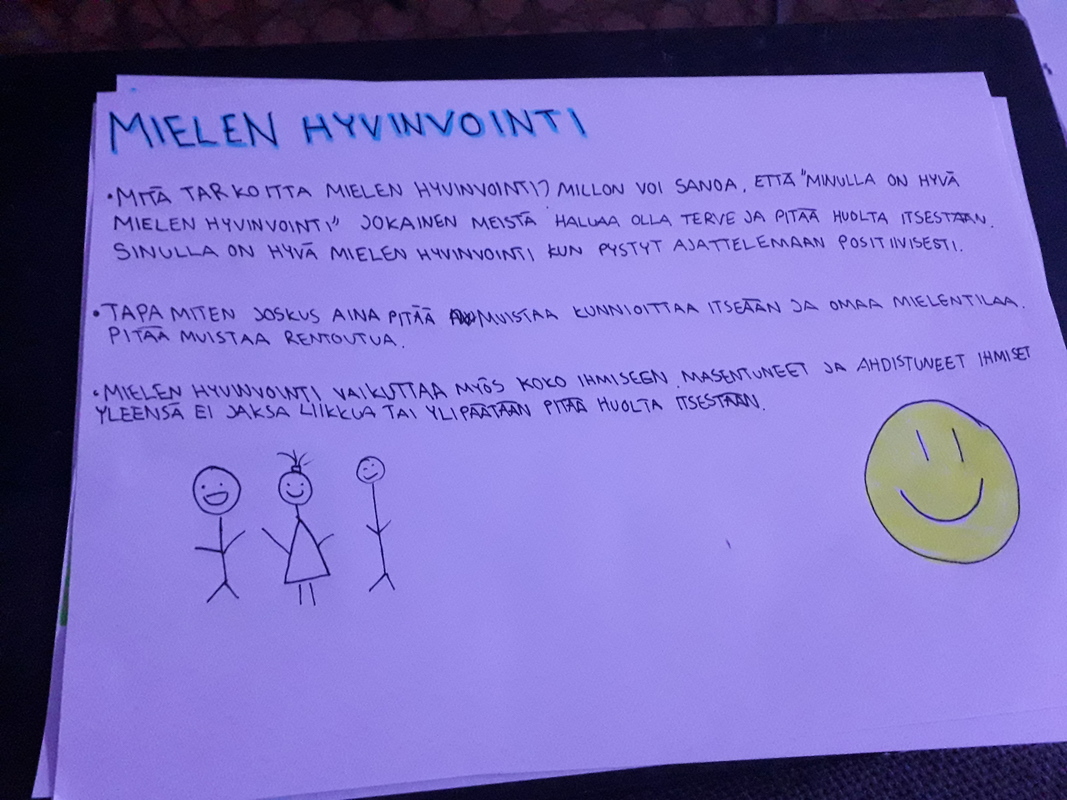 MIELEN HYVINVOINTI
•MITÄ TARKOITTA MIELEN HYVINVOINTI? MILLON VOI SANOA, ETTÄ "MINULLA ON HYVÄ
MIELEN HYVINVOINTI" JOKAINEN MEISTÄ HALUAA OLLA TERVE JA PITÄÄ HUOLTA ITSESTÄÄN.
SINULLA ON HYVÄ MIELEN HYVINVOINTI KUN PYSTYT AJATTELEMAAN POSITIIVISESTI.
•TAPA MITEN JOSKUS AINA PITÄÄ MUISTAA KUNNIOITTAA ITSEÄÄN JA OMAA MIELENTILAA.
PITÄÄ MUISTAA RENTOUTUA.
•MIELEN HYVINVOINTI VAIKUTTAA MYÖS KOKO IHMISEEN. MASENTUNEET JA AHDISTUNEET IHMISET
YLEENSÄ EI JAKSA LIIKKUA TAI YLIPÄÄTÄÄN PITÄÄ HUOLTA ITSESTÄÄN.